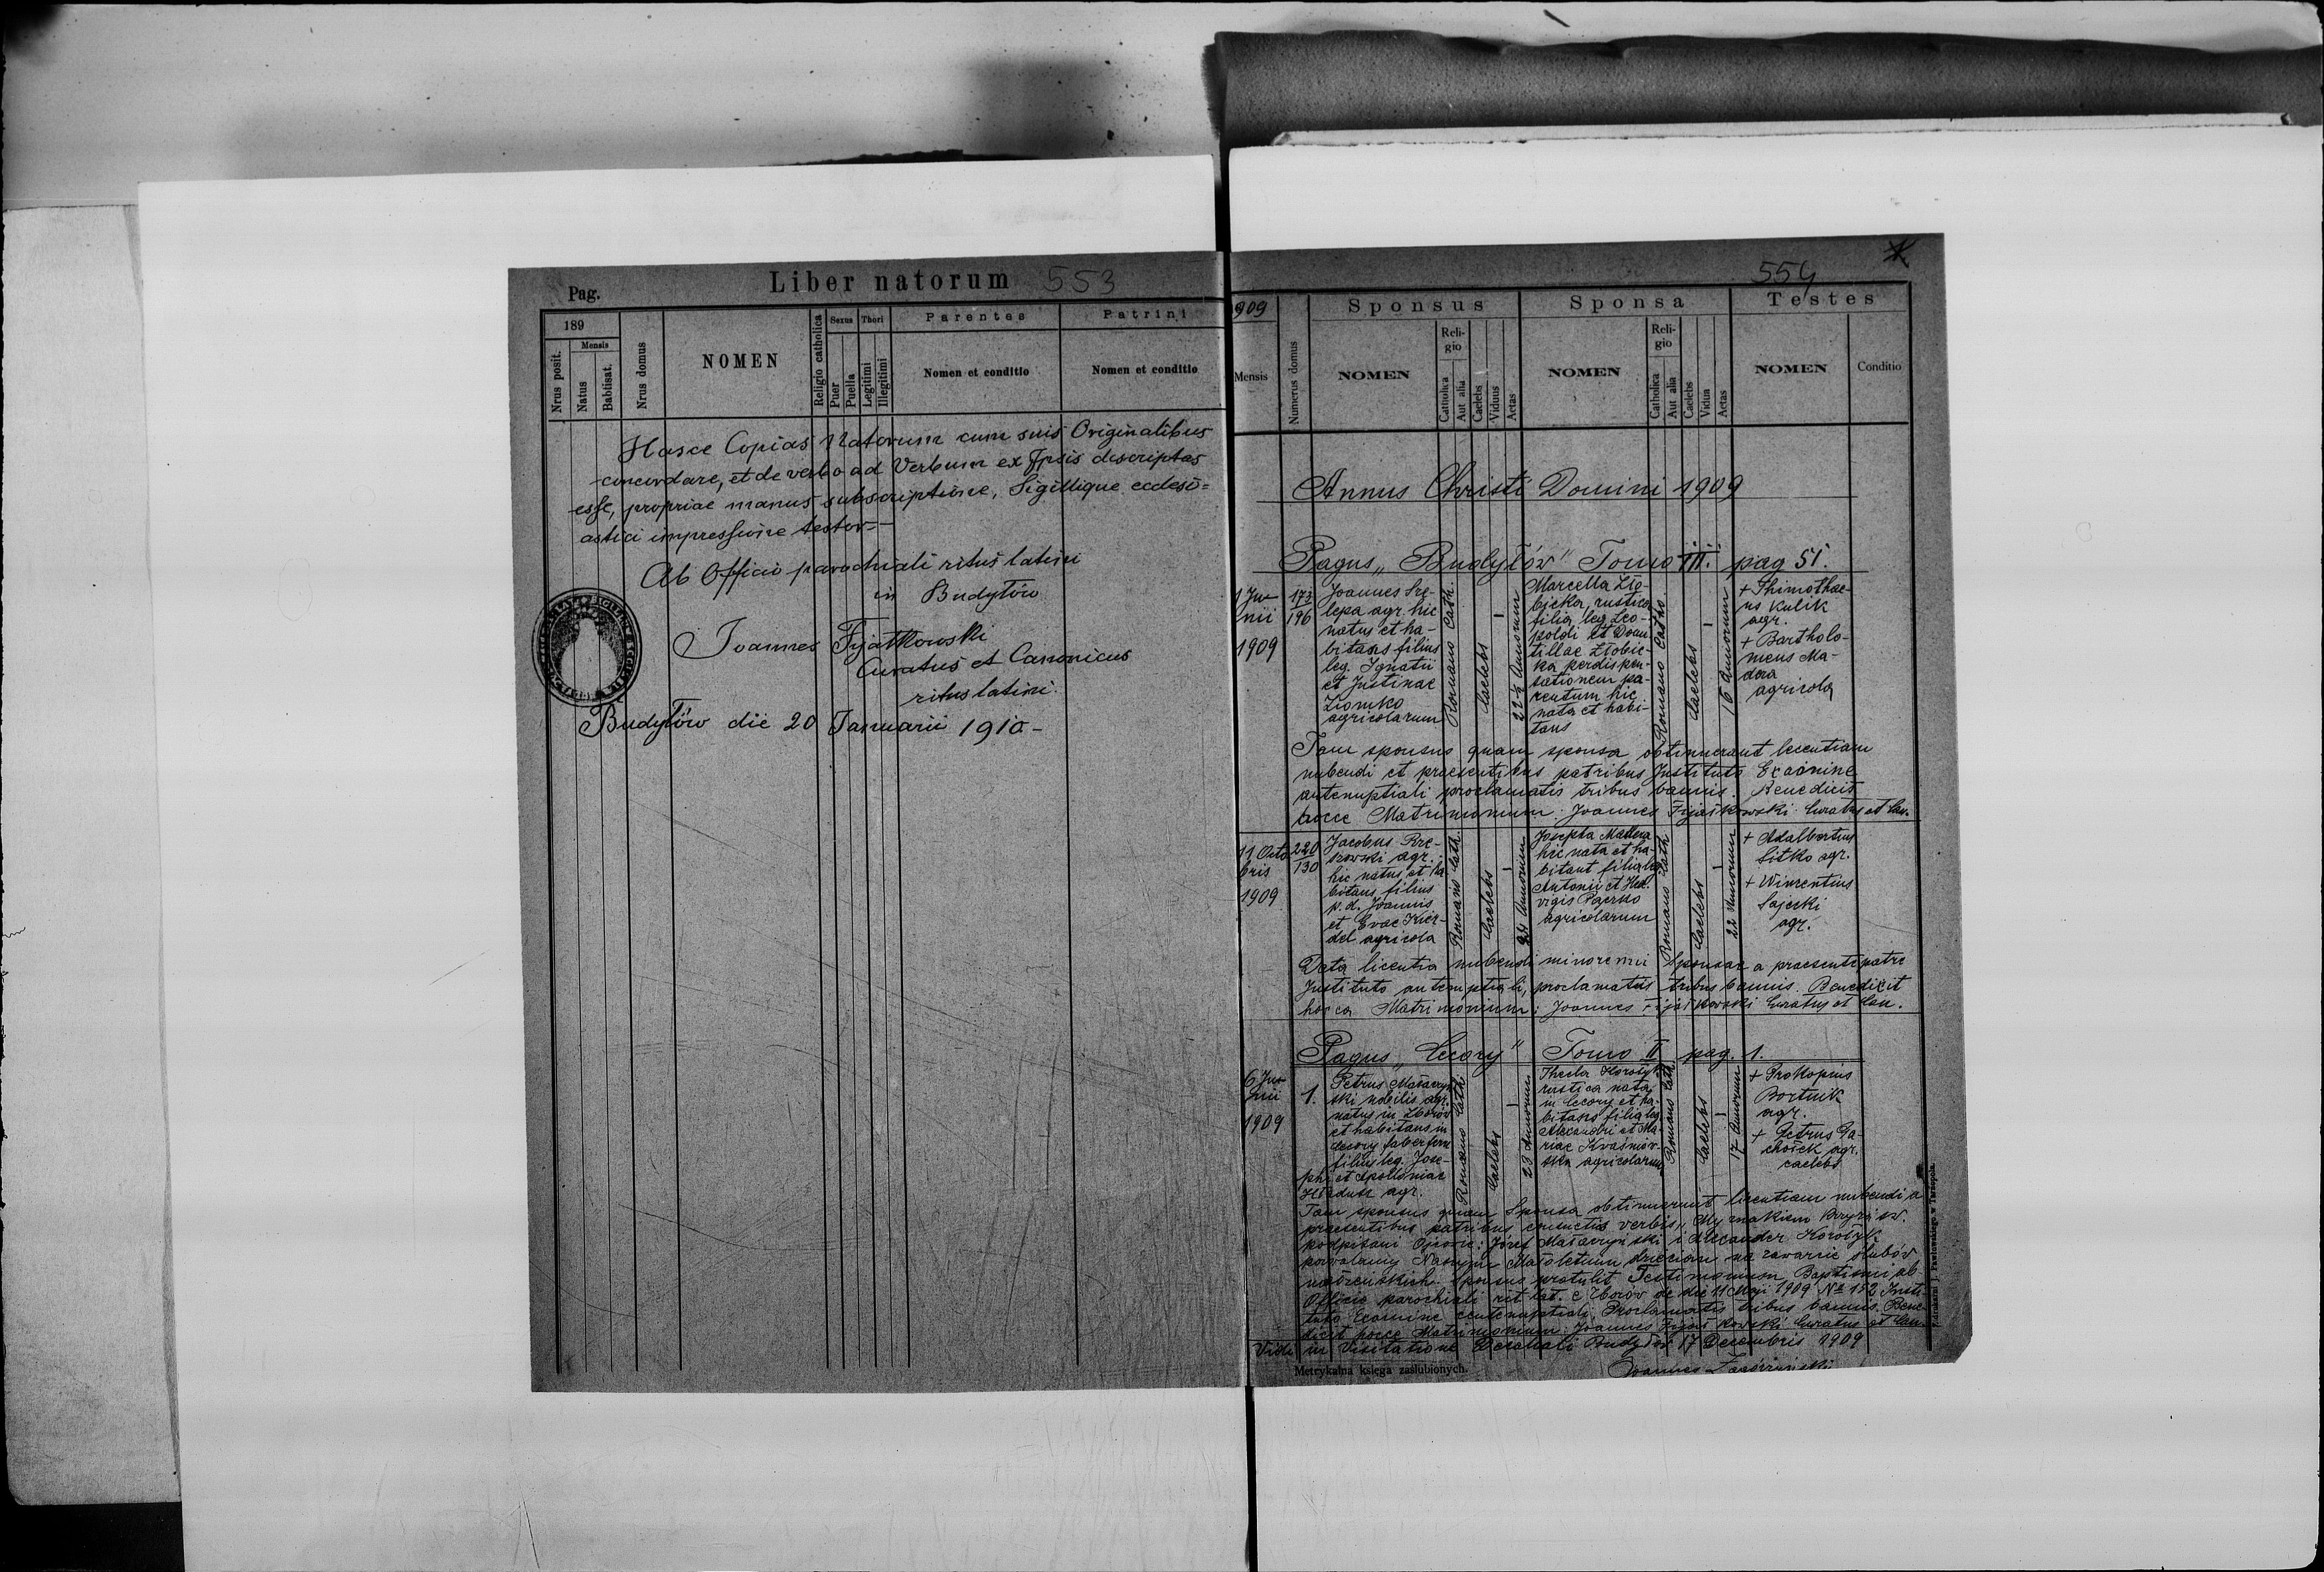 Pag.
Liber natorum 553
189
Nrus posit.
Mensis
Natus
Babtisat.
Nrus domus
NOMEN
Religio catholica
Sexus
Puer
Puella
Thori
Legitimi
Illegitimi
Parentes
Nomen et conditio
Patrini
Nomen et conditio
Hasce Copias Natorum cum suis Originalibus
concordare, et de verbo ad Verbum ex Ipsis descriptas
esse, propriae manus subscriptione, Sigillique ecclesi=
astici impressione testor-
Ab Officio parochiali ritus latini
in Budyłów
Joannes Fijałkowski
Curatus et Canonicus
ritus latini.
Budyłów die 20 Januarii 1910-
554
1909
Mensis
Numerus domus
Sponsus
NOMEN
Reli-
gio
Catholica
Aut alia
Caelebs
Viduus
Aetas
Sponsa
NOMEN
Reli-
gio
Catholica
Aut alia
Caelebs
Vidua
Aetas
Testes
NOMEN
Conditio
Annus Christi Domini 1909
Pagus "Budyłów" Tomo III. pag 51.
1 Ju-
nii
1909
173
196
Joannes
lepa agr. hic
natus et ha-
bitans filius
leg. Ignatii
et Justinae
Ziomko
agricolarum
Romano Cath.
Caelebs
-
22½ Annorum
Marcella Zło-
bicka, rustica
filia leg Leo-
poldi et
tillae Złobic-
ka per dispen-
sationem pa-
rentum hic
nata et habi-
tans
Romano Catho
Caelebs
-
16 Annorum
+ Thimothae-
us Kulik
agr.
+ Bartholo-
meus Ma-
dera
agricola
Tam sponsus quam sponsa obtinuerant licentiam
nubendi et praesentibus patribus Instituto Examine
antenuptiali proclamatis tribus bannis. Benedicit
hocce Matrimonium: Joannes Fijałkowski Curatus et Can.
11 Octo
bris
1909
220
130
Jacobus
agr.
hic natus et ha
bitans filius
p. d. Joannis
et Evae
del agricola
Romano Cath.
Caelebs
-
24 Annorum
Josepha Madera
hic nata et ha-
bitant filia leg
Antonii et Hed-
vigis
agricolarum
Romano Cath
Caelebs
-
22 Annorum
+ Adalbertus
Sitko agr.
+ Winzentius
Sajecki
agr.
Data licentia nubendi minorenni Sponsae a praesente patre
Instituto antenuptiali, proclamatis tribus bannis. Benedixit
hocce Matrimonium: Joannes Fijałkowski Curatus et Can.
Pagus "Cecory" Tomo II pag. 1.
6 Ju-
nii
1909
1.
Petrus Małaczyń
ski nobilis agr.
natus in Zborów
et habitans in
Cecory faber ferr
filius leg. Jose-
phi et Apolloniae
agr.
Romano Cath.
Caelebs
-
23 Annorum
Thecla Korołyk
rustica nata
in Cecory et ha-
bitans filia leg
Alexandri et Ma-
riae Kraśniow-
ska agricolarum
Romano Cath
Caelebs
-
17 Annorum
+ Prokopius
Bortnik
agr.
+ Petrus Pa-
chołek agr.
caelebs
Tam sponsus quam Sponsa obtinuerunt licentiam nubendi a
praesentibus patribus verbis "My znakiem Krzyża św.
podpisani Ojcowie: Józef Małaczyński i Alexander Korołyk
pozwalamy Naszym Małoletnim dzieciom na zawarcie ślubów
małżeńskich. Sponsus protulit Testimonium Baptismi ab
Officio parochiali rit. lat. e Zborów de die 11 Maji 1909 No 152 Insti-
tuto Examine antenuptiali Proclamatis tribus bannis. Bene-
dicit hocce Matrimonium: Joannes Fijałkowski Curatus et Can.
Vidi in Visitatione Decanali Budyłów 17 Decembris 1909
Metrykalna księga zaślubionych.
Joannes
Z drukarni J. Pawłowskiego w Tarnopolu.